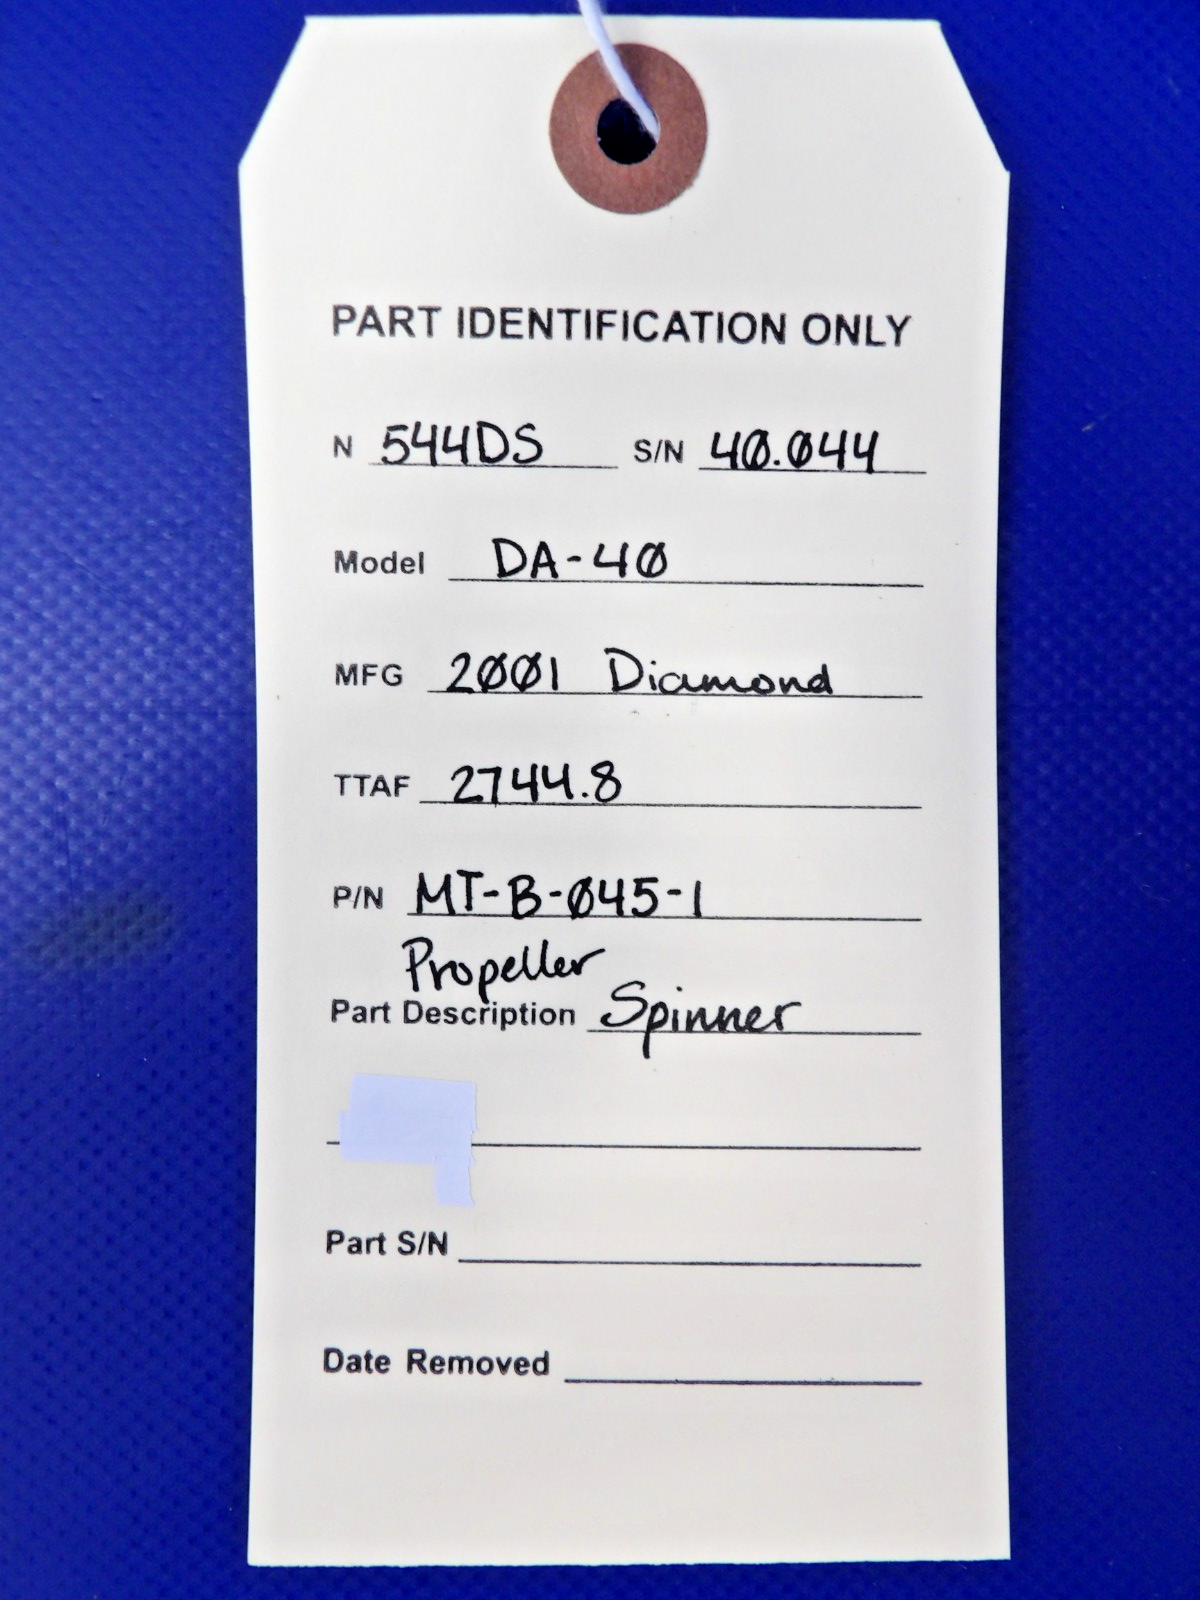 PART IDENTIFICATION ONLY
N 544DS S/N 40.044
Model DA-40
MFG 2001 Diamond
TTAF 2744.8
P/N MT-B-045-1
Propeller
Part Description Spinner
Part S/N
Date Removed